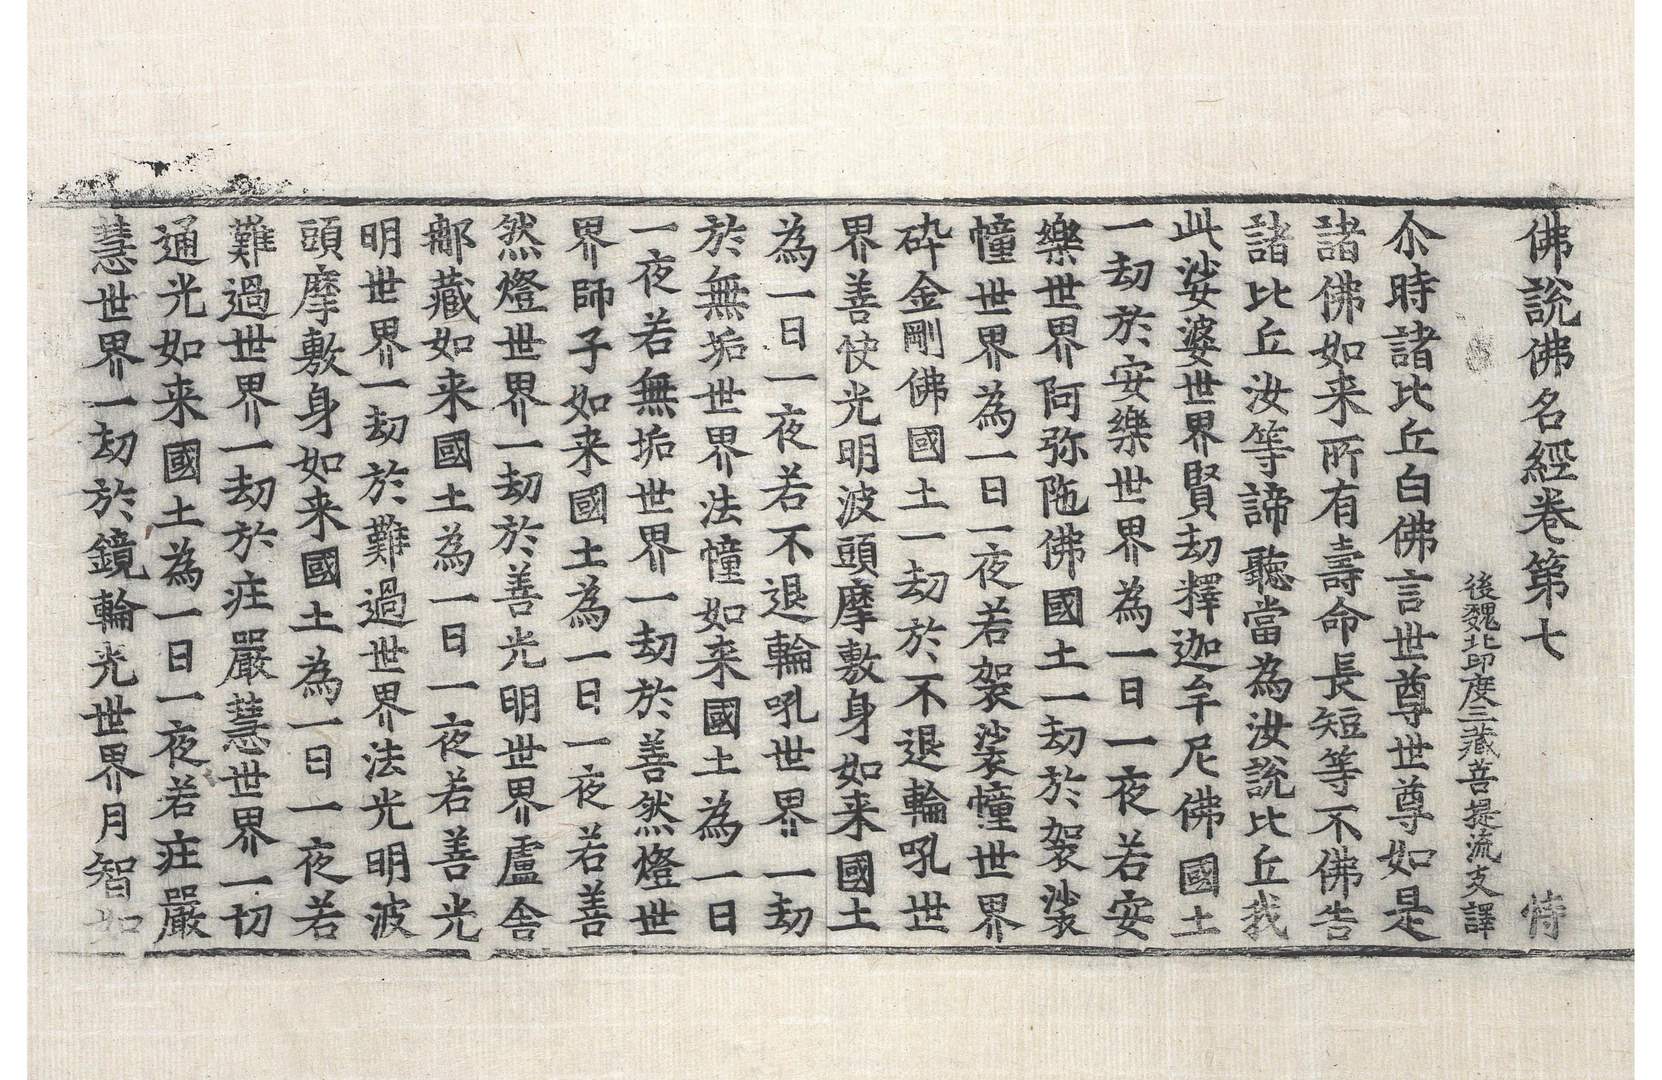 佛說佛名經卷第七 恃
後魏北印度三藏菩提流支譯
尒時諸比丘白佛言世尊世尊如是
諸佛如来所有壽命長短等不佛告
諸比丘汝等諦聽當為汝說比丘我
此娑婆世界賢劫釋迦牟尼佛國土
一劫於安樂世界為一日一夜若安
樂世界阿弥陁佛國土一劫於袈裟
幢世界為一日一夜若袈裟幢世界
碎金剛佛國土一劫於不退輪吼世
界善快光明波頭摩敷身如来國土
為一日一夜若不退輪吼世界一劫
於無垢世界法幢如来國土為一日
一夜若無垢世界一劫於善然燈世
界師子如来國土為一日一夜若善
然燈世界一劫於善光明世界盧舎
那藏如来國土為一日一夜若善光
明世界一劫於難過世界法光明波
頭摩敷身如来國土為一日一夜若
難過世界一劫於疘嚴慧世界一切
通光如来國土為一日一夜若疘嚴
慧世界一劫於鏡輪光世界月智如